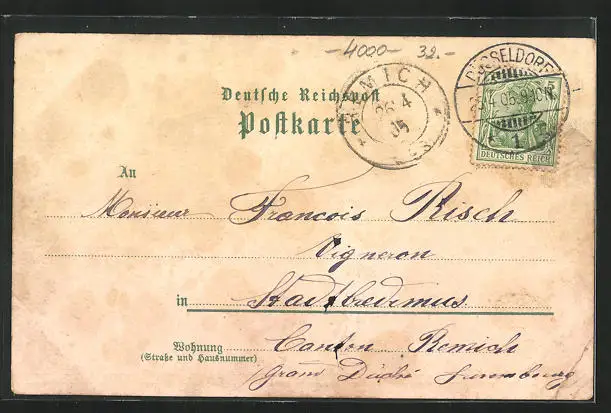 -4000- 32.-
Deutsche Reichspost
Postkarte
REMICH
26 4
05
DÜSSELDORF
1
DEUTSCHES REICH
An
Monsieur Francois Risch
Vigneron
in Stadtbredimus
Wohnung Canton Remich
(Straße und Hausnummer)
Grand Duché Luxembourg